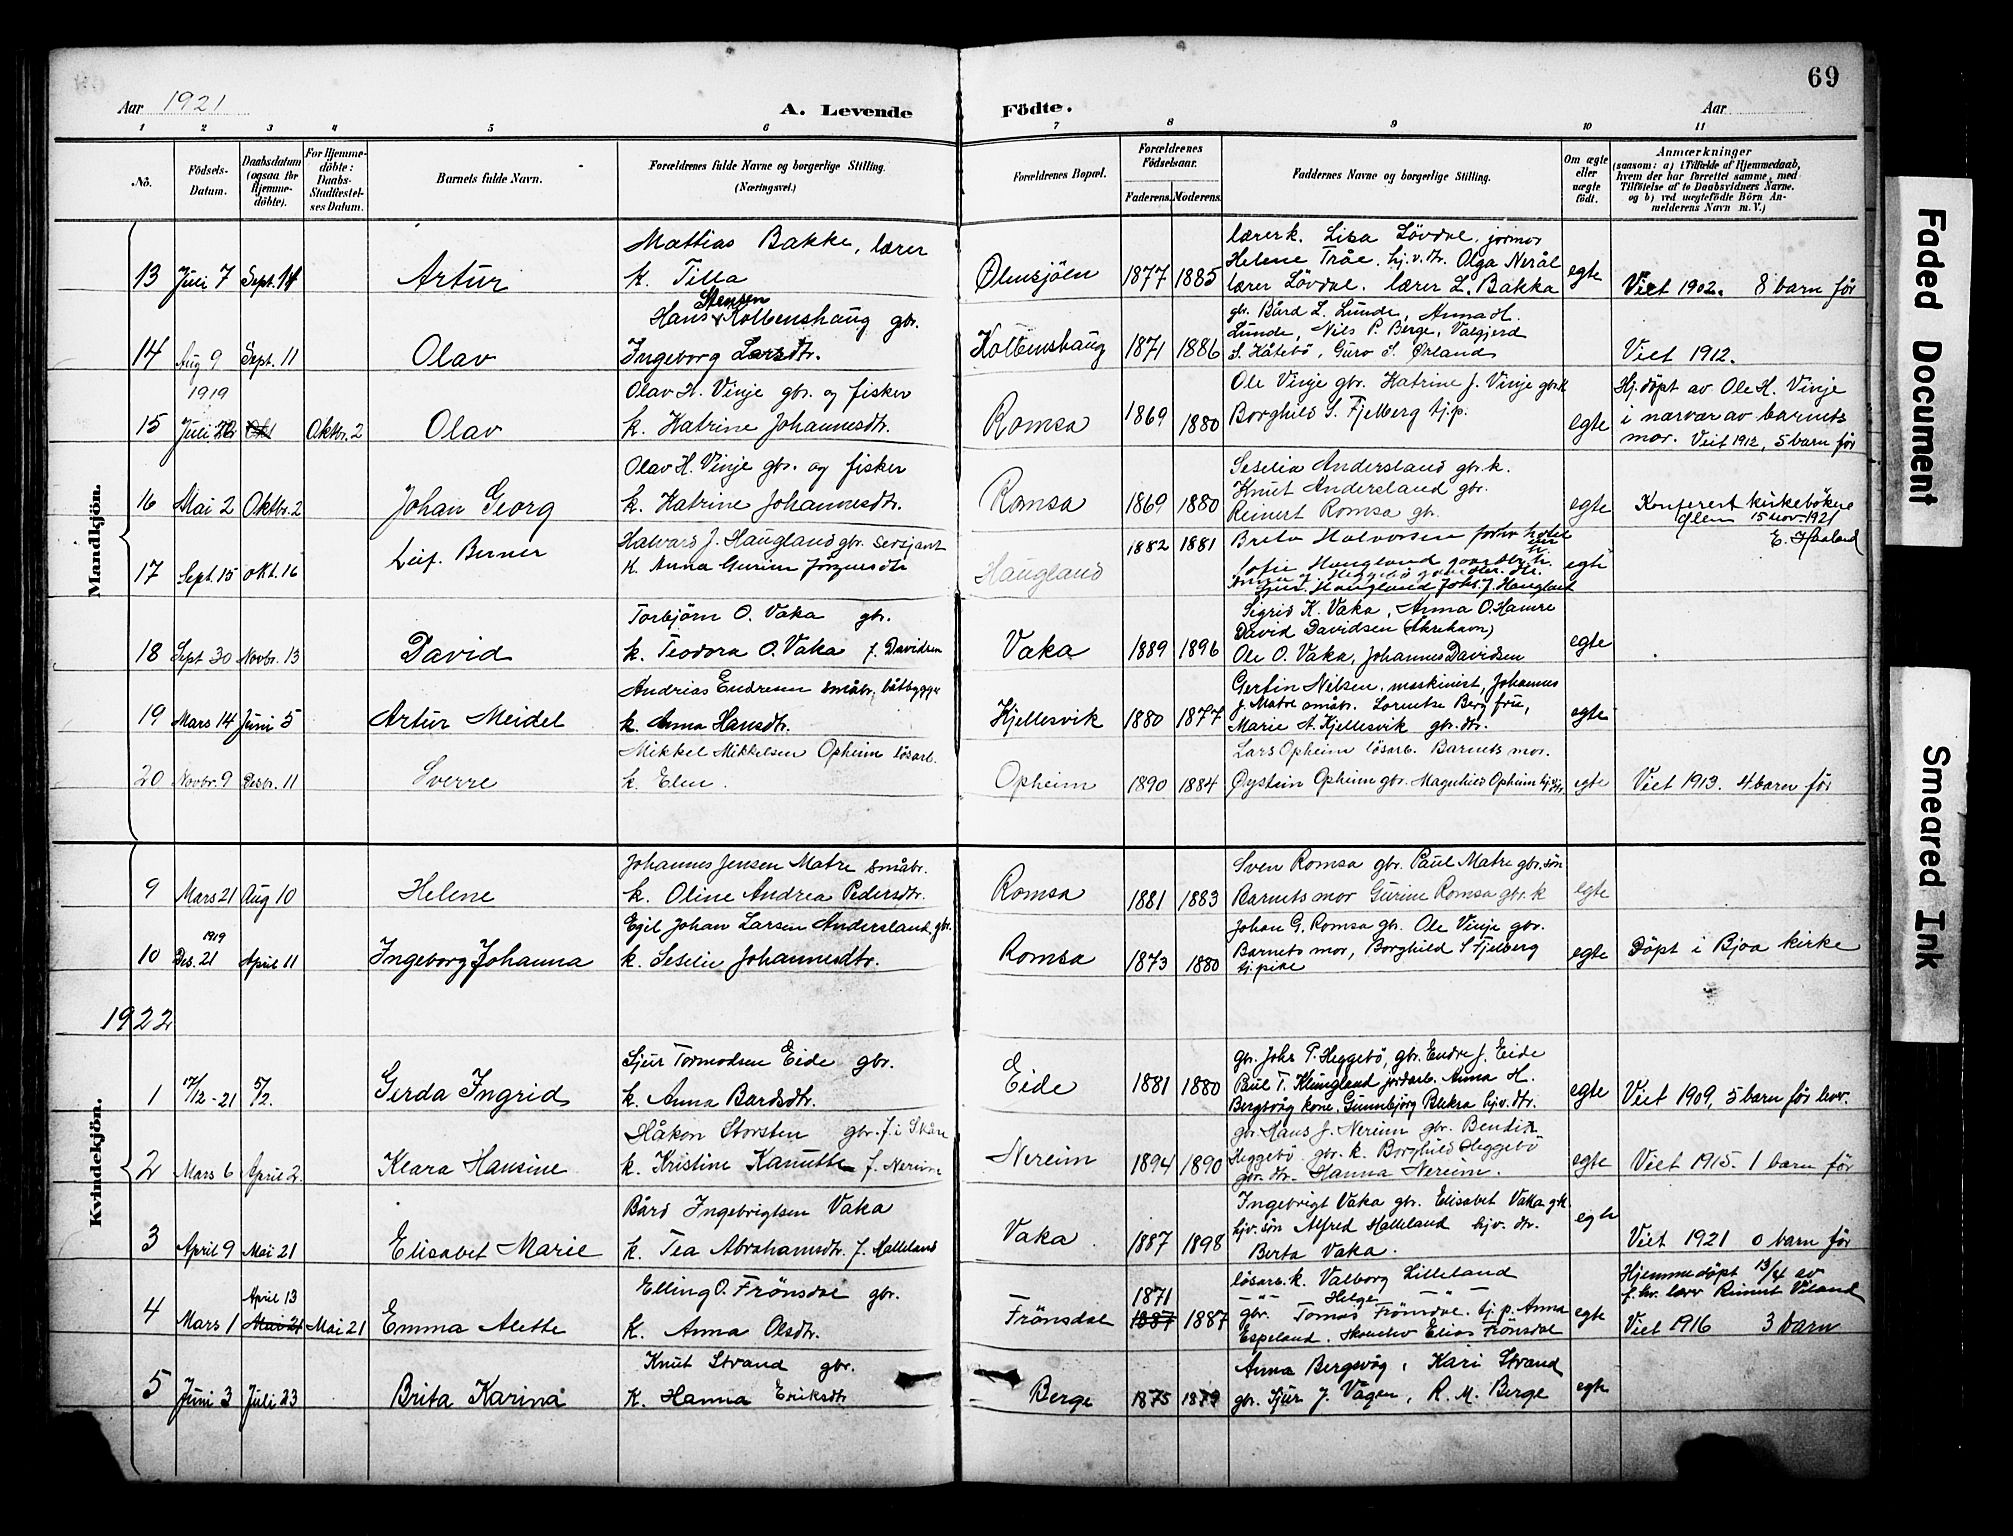 69
Aar 1921
A. Levende Födte.
Aar
1 2 3 4 5 6 7 8 9 10 11
No.
Födsels-Datum.
Daabsdatum (ogsaa for Hjemme-döbte).
For Hjemme-döbte: Daabs-Stadfæstel-ses Datum.
Barnets fulde Navn.
Forældrenes fulde Navne og borgerlige Stilling. (Næringsvei.)
Forældrenes Bopæl.
Forældrenes Födselsaar.
Faderens. Moderens.
Faddernes Navne og borgerlige Stilling.
Om ægte eller uægte födt.
Anmærkninger
(saasom: a) i Tilfælde af Hjemmedaab, hvem der har forrettet samme, med Tilföielse af to Daabsvidners Navne. og b) ved uægtefödte Börn An-melderens Navn m. V.)
Mandkjön.
13 Juli 7 Sept. 14 Artur
Mattias Bakke, lærer
k. Tilla
Ölensjöen 1877 1885
lærerk. Lisa Lövdal, jormor
Helene Tråe. hj.v.dtr. Olga Nerål
lærer Lövdal. lærer L. Bakka
egte
Viet 1902. 8 barn før
14 Aug 9 Sept. 11 Olav
Stensen
Hans Kolbenshaug gbr.
Ingeborg Larsdtr.
Kolbenshaug 1871 1886
gbr. Bård L. Lunde, Anna H.
Lunde, Nils P. Berge, Valgjerd
S. Håtebö, Guro S. Ørland
Viet 1912.
15 1919 Juli 22 Oktbr. 2 Olav
Olav H. Vinje gbr. og fisker
k. Katrine Johannesdtr.
Romsa 1869 1880
Ole Vinje gbr. Katrine J. Vinje gbr.k
Borghild S. Fjelberg tj.p.
egte
Hj.döpt av Ole H. Vinje
i nærvær av barnets
mor. Veit 1912, 5 barn før
16 Mai 2 Oktbr. 2 Johan Georg
Olav H. Vinje gbr. og fisker
k. Katrine Johannesdtr.
Romsa 1869 1880
Seselia Andersland gbr.k.
Knut Andersland gbr.
Reinert Romsa gbr.
egte
Konferert kirkebökene
Ølen 15 nov. 1921
E. Haaland
17 Sept. 15 okt. 16 Leif. Berner
Halvard J. Haugland gbr. sersjant
k. Anna Gurine Jörgensdtr
Haugland 1882 1881
Brita Halvorsen
Sofie Haugland
Haugland Johs. J. Haugland
egte
18 Sept 30 Novbr. 13 David
Torbjörn O. Vaka gbr.
k. Teodora O. Vaka f. Davidsen
Vaka 1889 1896
Sigrid K. Vaka, Anna O. Hamre
David Davidsen (Akrehavn)
Ole O. Vaka, Johannes Davidsen
egte
19 Mars 14 Juni 5 Artur Meidel
Andrias Endresen småbr. båtbygger
k. Anna Hansdtr.
Kjellesvik 1880 1877
Gerfin Nilsen, maskinist, Johannes
J. Matre småbr. Lorentse Berg frue,
Marie A. Kjellesvik gbr. dtr.
egte
20 Novbr. 9 Desbr. 11 Sverre
Mikkel Mikkelsen Opheim lösarb.
k. Elen.
Opheim 1890 1884
Lars Opheim lösarb. Barnets mor.
Øystein Opheim gbr. Magnhild Opheim hjv.dtr
egte
Viet 1913. 4 barn før
9 Mars 21 Aug 10 Helene
Johannes Jensen Matre småbr.
k. Oline Andrea Pedersdtr.
Romsa 1881 1883
Sven Romsa gbr. Paul Matre gbr.sön
Barnets mor Gurine Romsa gbr. k
egte
10 1919 Des. 21 April 11 Ingeborg Johanna
Egil Johan Larsen Andersland, gbr.
k. Seselie Johannesdtr.
Romsa 1873 1880
Johan G. Romsa gbr. Ole Vinje gbr.
Barnets mor, Borghild S Fjelberg
tj.pike
egte
Döpt i Bjoa kirke
1922
Kvindekjön.
1 17/12-21 5/2. Gerda Ingrid
Sjur Tormodsen Eide gbr.
k. Anna Bardsdtr.
Eide 1881 1880
gbr. Johs P. Heggebö, gbr. Endre J. Eide
Paul T. Klungland jordarb. Anna H.
Bergsvåg kone, Gunnbjörg Bleksa hjv. dtr.
egte
Viet 1909, 5 barn før lev.
2 Mars 6 April 2 Klara Hansine
Håkon Storsten gbr. f. i Skåne
k. Kristine Kanutte f. Nereim
Nereim 1894 1890
gbr. Hans J. Nereim gbr. Bendix
Heggebö gbr. k. Borghild Heggebö
gbr. dtr. Hanna Nereim.
egte
Viet 1915. 1 barn før
3 April 9 Mai 21 Elisabet Marie
Bård Ingebrigtsen Vaka
k. Tea Abrahamsdtr. f. Halleland
Vaka 1887 1898
Ingebrigt Vaka gbr. Elisabet Vaka g.k.
hjv. sön Alfred Halleland hjv. dtr.
Berta Vaka.
egte
Viet 1921 0 barn før
4 Mars 1 April 13 Mai 21 Mai 21 Emma Alette
Elling O. Frönsdal gbr.
k. Anna Olsdtr.
Frönsdal 1871 1887 1887
lösarb. k. Valborg Lilleland
gbr. Tomas Helge Frönsdal. tj. p. Anna
Espeland. Elias Frönsdal
egte
Hjemmedöpt 13/4 av
f. hv. lærer Reinert Viland
Viet 1916 3 barn
5 Juni 3 Juli 23 Brita Karina
Knut Strand gbr.
k. Hanna Eriksdtr
Berge 1875 1879
Anna Bergsvåg, Kari Strand
gbr. Sjur J. Vågen, R. M. Berge
egte
Faded Document
Smeared Ink